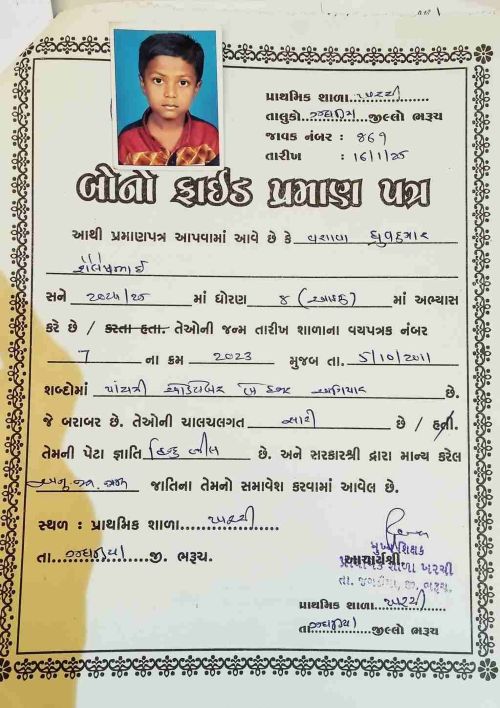 પ્રાથમિક શાળા ખરચી
તાલુકો ઝઘડીયા જીલ્લો ભરૂચ
જાવક નંબર : 869
તારીખ : 16/1/25
બોનો ફાઈડ પ્રમાણ પત્ર
આથી પ્રમાણપત્ર આપવામાં આવે છે કે વસાવા ધ્રુવકુમાર
શૈલેષભાઈ
સને 2024/25 માં ધોરણ 8 (આઠ) માં અભ્યાસ
કરે છે / કરતા હતા. તેઓની જન્મ તારીખ શાળાના વયપત્રક નંબર
7 ના ક્રમ 2023 મુજબ તા. 5/10/2011
શબ્દોમાં પાંચમી ઓક્ટોબર બે હજાર અગિયાર છે.
જે બરાબર છે. તેઓની ચાલચલગત સારી છે / હતી.
તેમની પેટા જ્ઞાતિ હિન્દુ ભીલ છે. અને સરકારશ્રી દ્વારા માન્ય કરેલ
અનુ.જન.જાતિ જાતિના તેમનો સમાવેશ કરવામાં આવેલ છે.
સ્થળ : પ્રાથમિક શાળા ખરચી
તા. ઝઘડીયા જી. ભરૂચ.
આચાર્યશ્રી
મુખ્ય શિક્ષક
પ્રાથમિક શાળા ખરચી
તા. ઝગડીયા, જી. ભરૂચ.
પ્રાથમિક શાળા ખરચી
તા. ઝઘડીયા જીલ્લો ભરૂચ